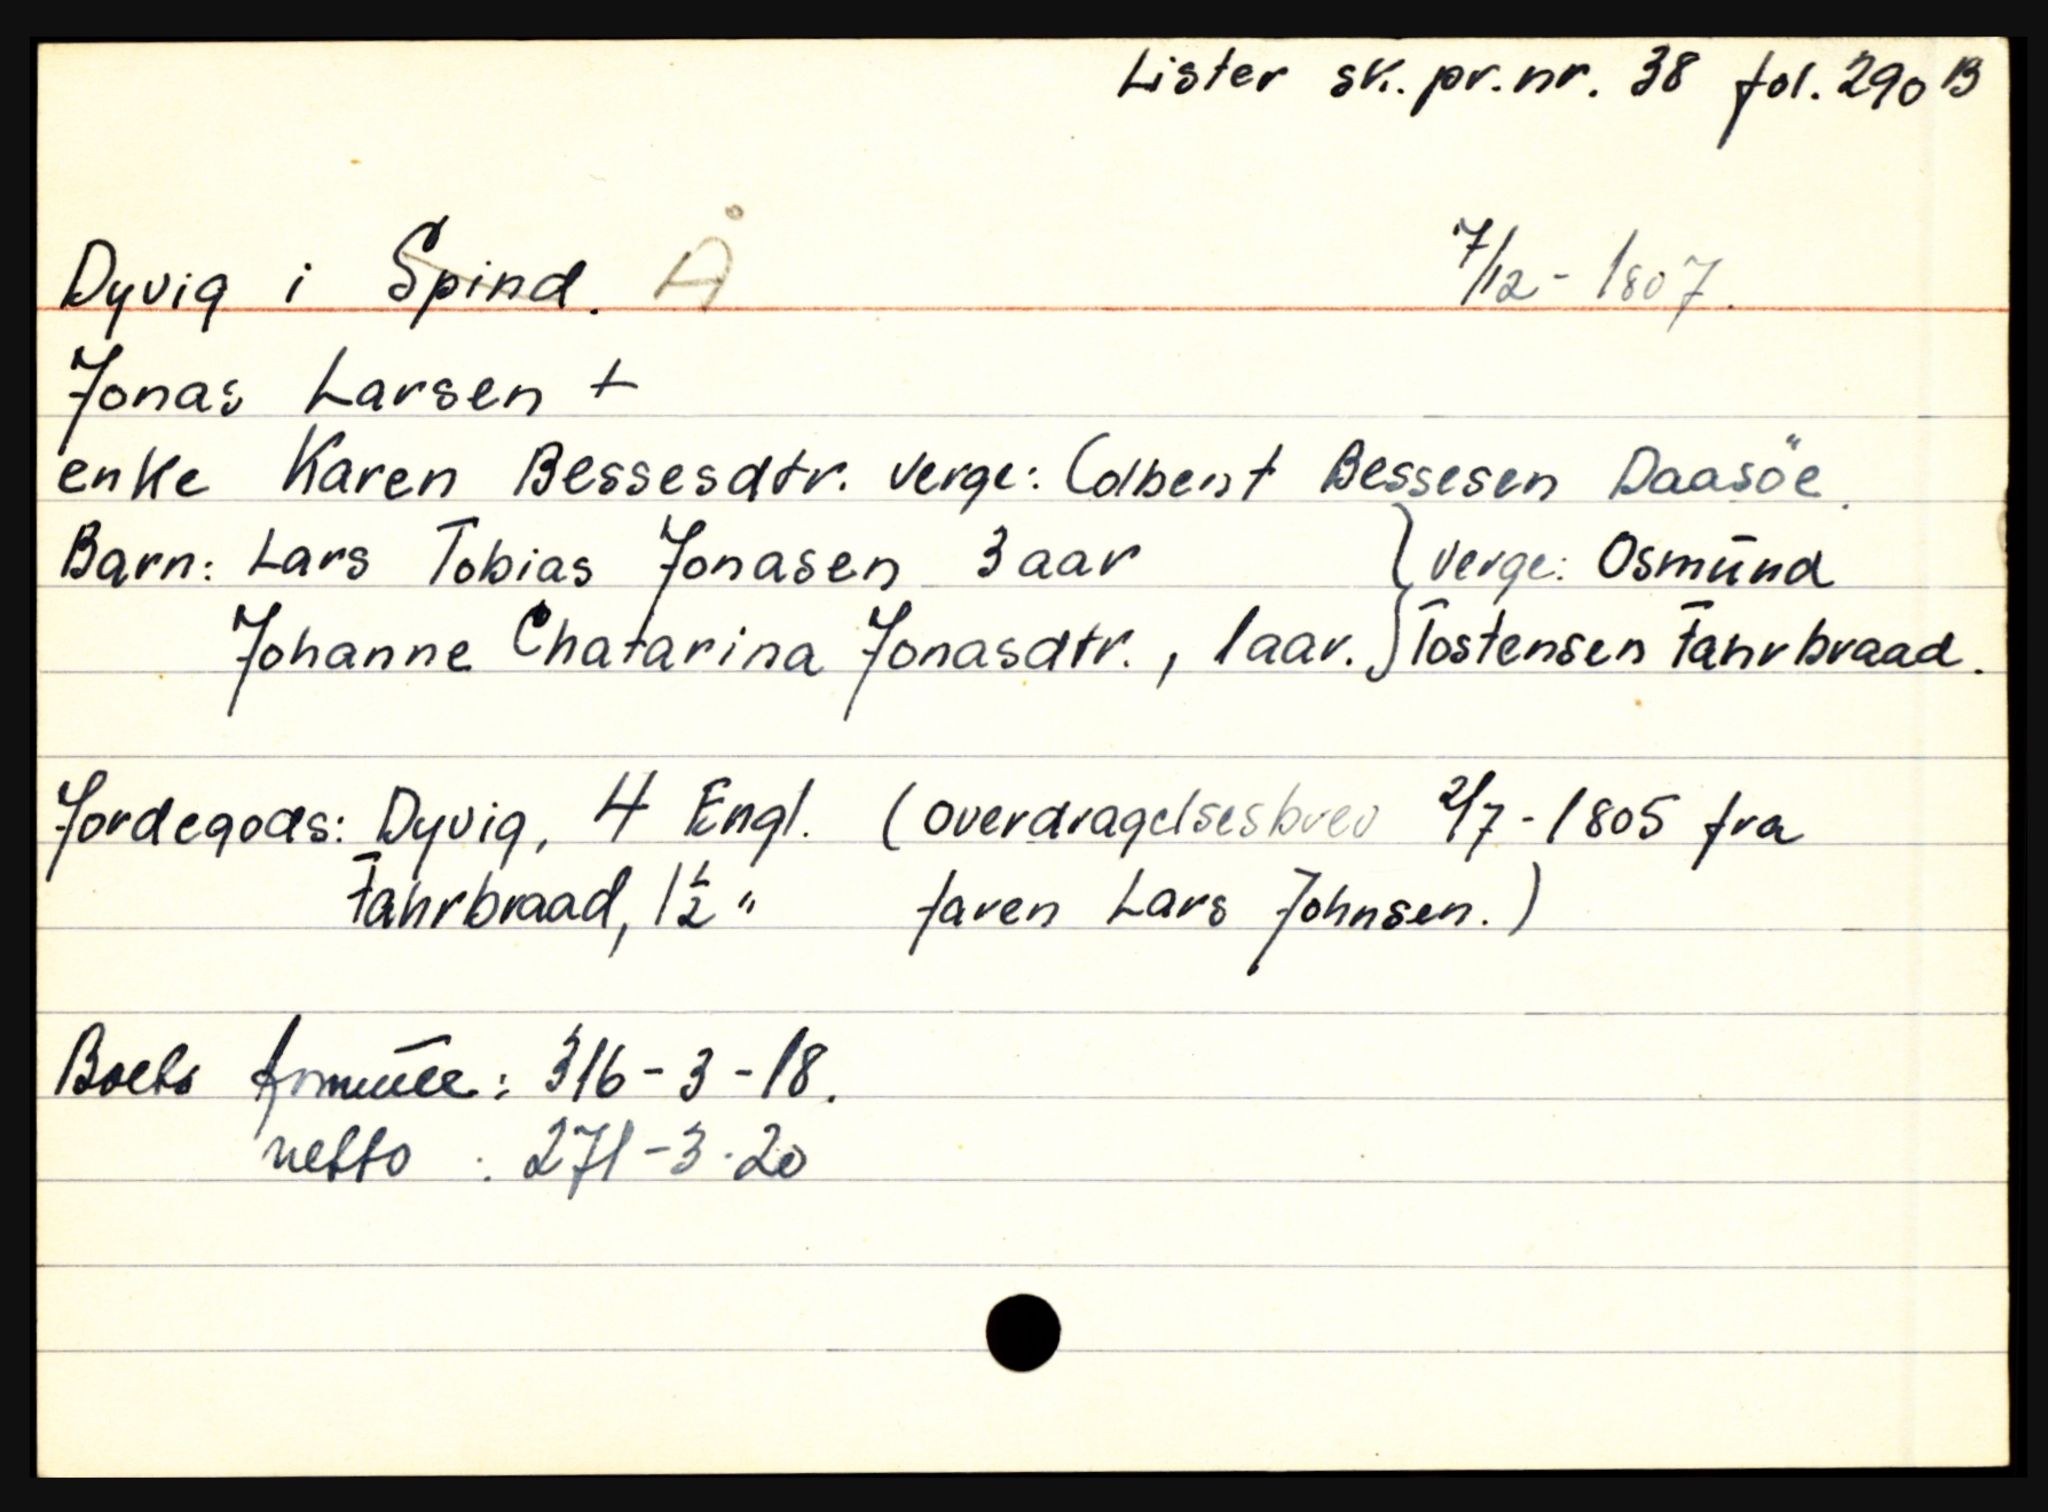 Lister sk. pr. nr. 38 fol. 290 B
Dyvig i Spind. Å 7/12 - 1807.
Jonas Larsen +
enke Karen Bessesdtr. verge: Colbent Bessesen Daasöe.
Barn: Lars Tobias Jonasen 3 aar } verge: Osmünd
Johanne Chatarina Jonasdtr., 1 aar. } Tostensen Fahrbraad.
Jordegods: Dyvig, 4 Engl. (overdragelsesbrev 2/7 - 1805 fra
Fahrbraad, 1 1/2 " faren Lars Johnsen.)
Boets formüe: 316 - 3 - 18.
netto : 271 - 3 - 20